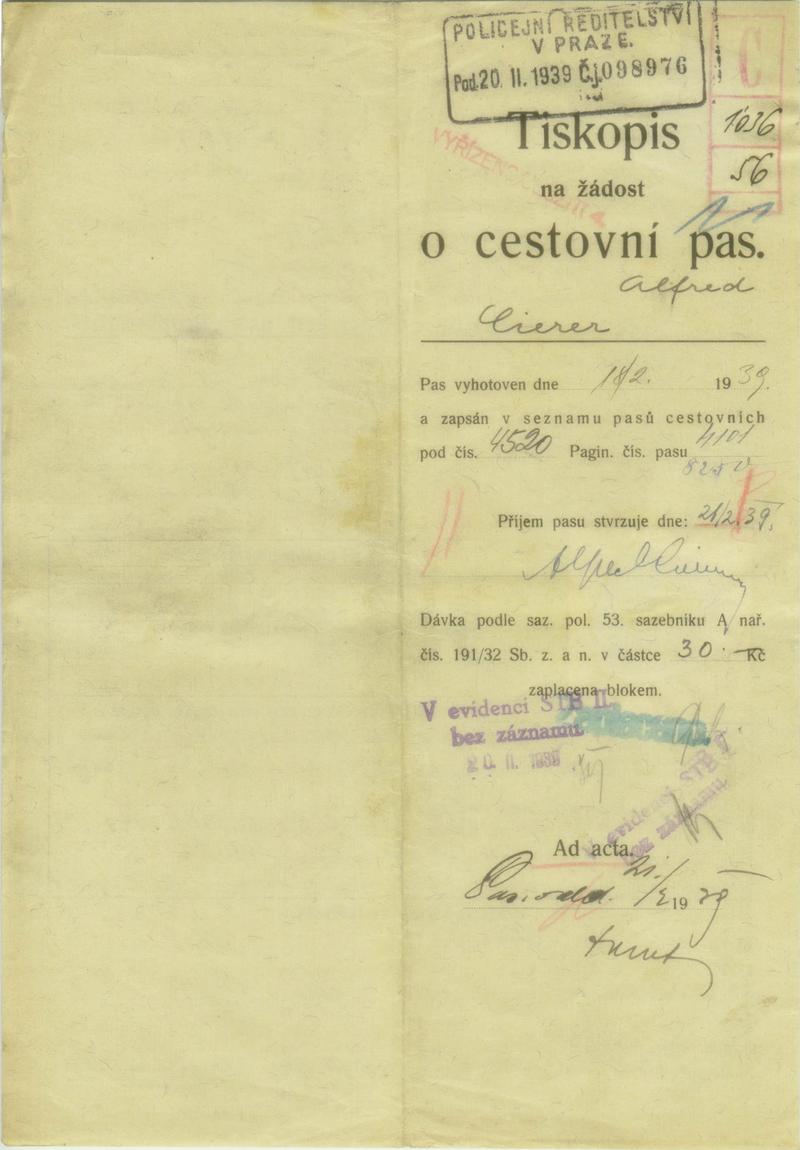 POLICEJNÍ ŘEDITELSTVÍ
V PRAZE.
Pod. 20. II. 1939 Č.j. 098976
C
1036
56
Tiskopis
na žádost
o cestovní pas.
Alfred
Cierer
Pas vyhotoven dne 18/2. 1939.
a zapsán v seznamu pasů cestovních
pod čís. 4520 Pagin. čís. pasu 4101
Příjem pasu stvrzuje dne: 21/2. 39.
Dávka podle saz. pol. 53. sazebníku A, nař.
čís. 191/32 Sb. z. a n. v částce 30.— Kč
zaplacena blokem.
V evidenci STB II.
bez záznamu.
20. II. 1939
V evidenci STB
bez záznamu
Ad acta.
21. 1939